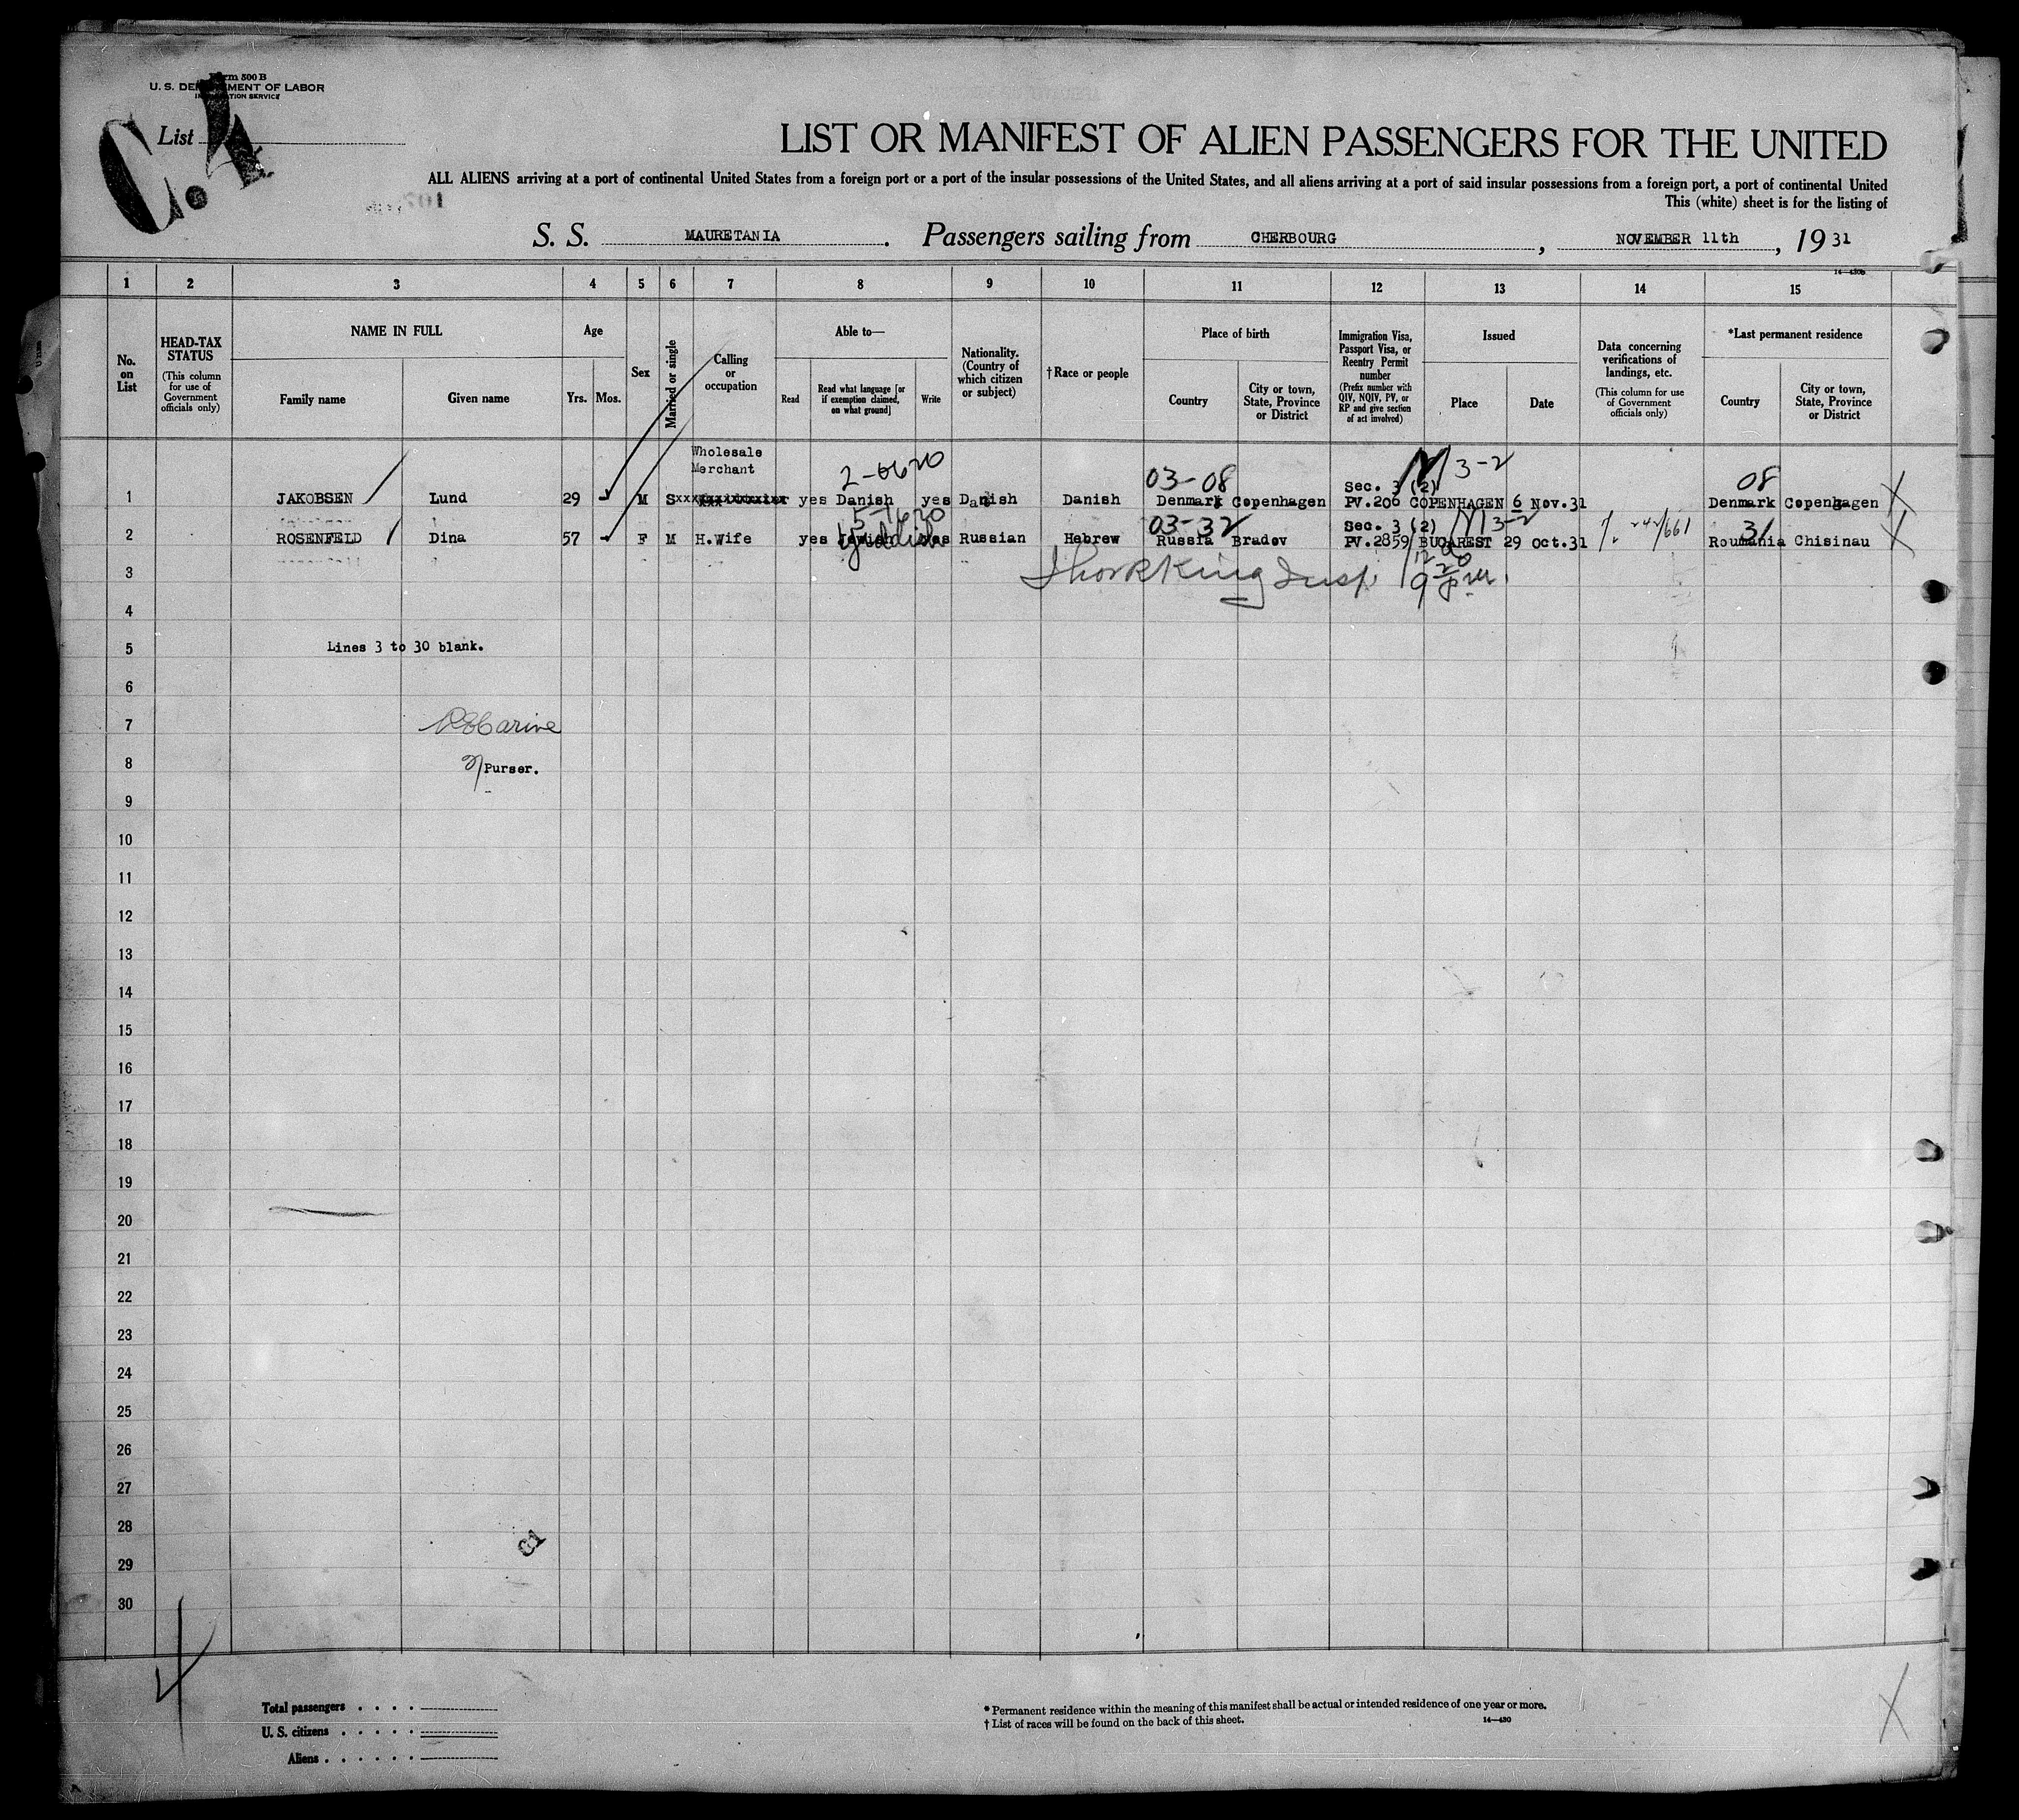 Form 500 B
U. S. DEPARTMENT OF LABOR
IMMIGRATION SERVICE
List
C. 4
LIST OR MANIFEST OF ALIEN PASSENGERS FOR THE UNITED
ALL ALIENS arriving at a port of continental United States from a foreign port or a port of the insular possessions of the United States, and all aliens arriving at a port of said insular possessions from a foreign port, a port of continental United
This (white) sheet is for the listing of
S. S. MAURETANIA. Passengers sailing from CHERBOURG, NOVEMBER 11th, 19 31
14—430b
1 2 3 4 5 6 7 8 9 10 11 12 13 14 15
No. on List
HEAD-TAX STATUS (This column for use of Government officials only)
NAME IN FULL
Family name Given name
Age
Yrs. Mos.
Sex
Married or single
Calling or occupation
Able to—
Read Read what language [or if exemption claimed, on what ground] Write
Nationality. (Country of which citizen or subject)
†Race or people
Place of birth
Country City or town, State, Province or District
Immigration Visa, Passport Visa, or Reentry Permit number (Prefix number with QIV, NQIV, PV, or RP and give section of act involved)
Issued
Place Date
Data concerning verifications of landings, etc. (This column for use of Government officials only)
*Last permanent residence
Country City or town, State, Province or District
Wholesale
Merchant 2-6620 03-08 Sec. 3 (2) 3-2 08
1 JAKOBSEN Lund 29 M S yes Danish yes Danish Danish Denmark Copenhagen PV.206 COPENHAGEN 6 Nov.31 Denmark Copenhagen X
5-1620 03-32 Sec. 3 (2) 3-2 31
2 ROSENFELD Dina 57 F M H.Wife yes Yiddish yes Russian Hebrew Russia Bradov PV.2859 BUCAREST 29 Oct.31 Roumania Chisinau X
3
4
5 Lines 3 to 30 blank.
6
7
8 Purser.
9
10
11
12
13
14
15
16
17
18
19
20
21
22
23
24
25
26
27
28
29
30
4
Total passengers
U. S. citizens
Aliens
* Permanent residence within the meaning of this manifest shall be actual or intended residence of one year or more.
† List of races will be found on the back of this sheet.
14—430
X